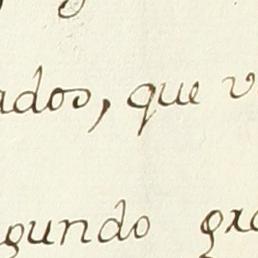 ados, que v
gundo gra